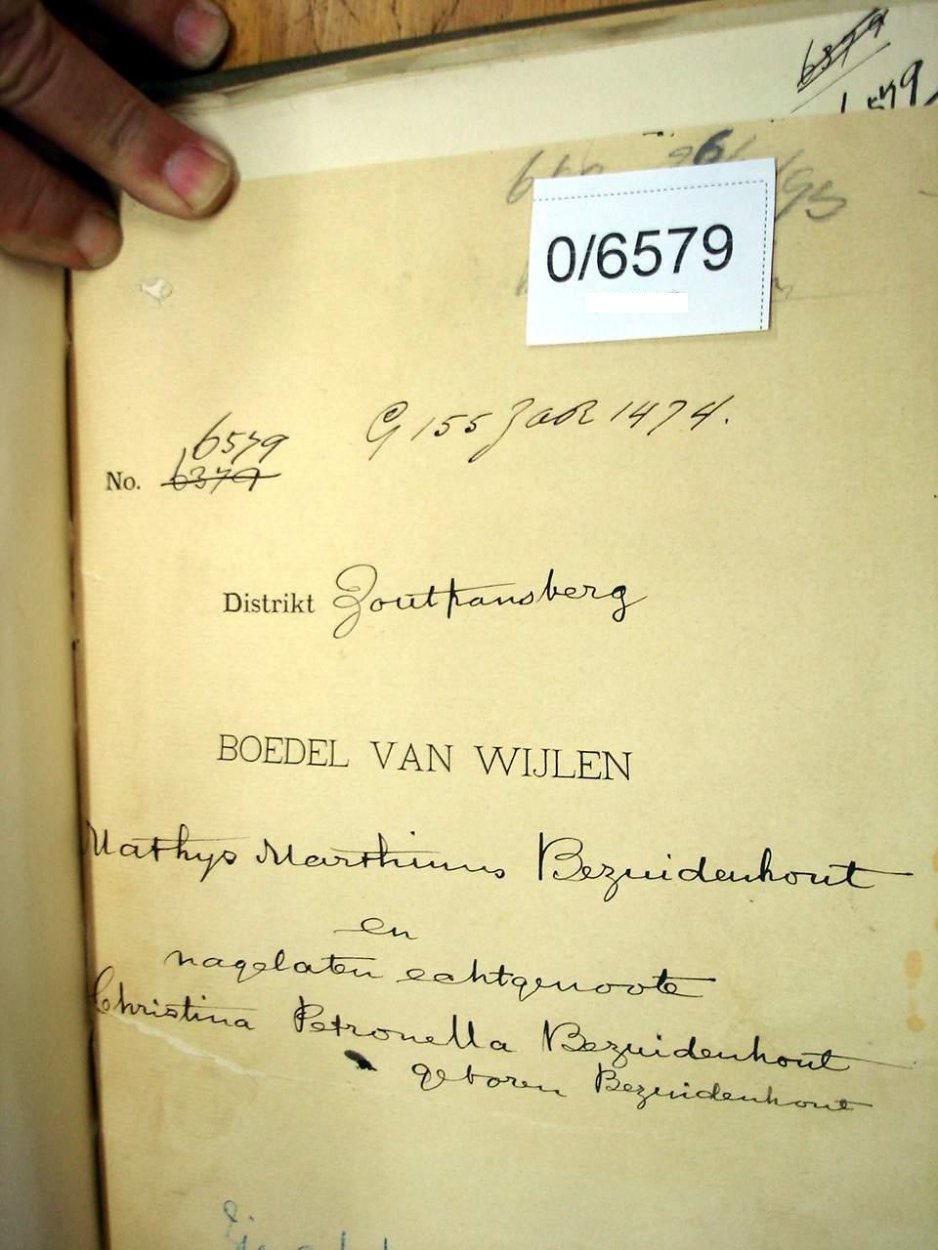 6379
0/6579
6579
G 155 Jaar 1474.
No. 6379
Distrikt Zoutpansberg
BOEDEL VAN WIJLEN
Mathys Marthinus Bezuidenhout
en
nagelaten echtgenoote
Christina Petronella Bezuidenhout
geboren Bezuidenhout